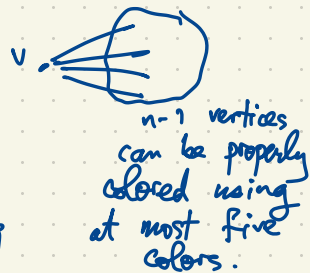 v
n-1 vertices
can be properly
colored using
at most five
colors.